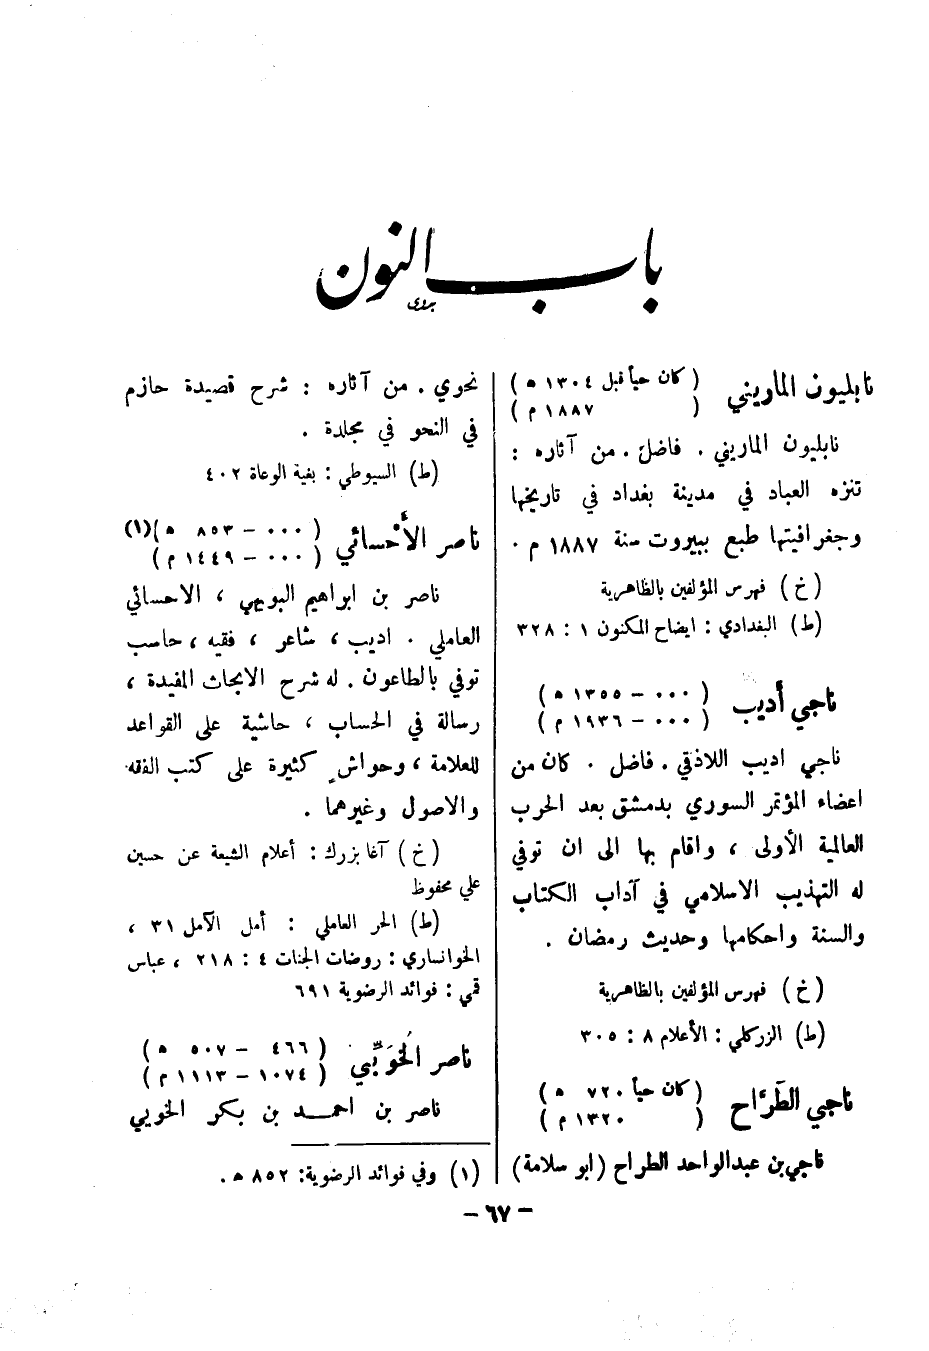 باب النون
نابليون الماريني (كان حياً قبل ١٣٠٤ ه)
( ١٨٨٧ م)
نابليون الماريني . فاضل . من آثاره :
تنزه العباد في مدينة بغداد في تاريخها
وجغرافيتها طبع ببيروت سنة ١٨٨٧ م .
(خ) فهرس المؤلفين بالظاهرية
(ط) البغدادي : ايضاح المكنون ١ : ٣٢٨
ناجي أديب (٠٠٠ – ١٣٥٥ ه)
(٠٠٠ – ١٩٣٦ م)
ناجي اديب اللاذقي . فاضل . كان من
اعضاء المؤتمر السوري بدمشق بعد الحرب
العالمية الأولى ، واقام بها الى ان توفي
له التهذيب الاسلامي في آداب الكتاب
والسنة واحكامها وحديث رمضان .
(خ) فهرس المؤلفين بالظاهرية
(ط) الزركلي : الأعلام ٨ : ٣٠٥
ناجي الطَرَّاح (كان حياً ٧٢٠ ه)
( ١٣٢٠ م)
ناجي بن عبدالواحد الطراح (ابو سلامة)
نحوي . من آثاره : شرح قصيدة حازم
في النحو في مجلدة .
(ط) السيوطي : بغية الوعاة ٤٠٢
ناصر الأَحْسائي (٠٠٠ – ٨٥٣ ه)(١)
(٠٠٠ – ١٤٤٩ م)
ناصر بن ابراهيم البويهي ، الاحسائي
العاملي . اديب ، شاعر ، فقيه ، حاسب
توفي بالطاعون . له شرح الابحاث المفيدة ،
رسالة في الحساب ، حاشية على القواعد
للعلامة ، وحواشٍ كثيرة على كتب الفقه
والاصول وغيرهما .
(خ) آغا بزرك : أعلام الشيعة عن حسين
علي محفوظ
(ط) الحر العاملي : أمل الآمل ٣١ ،
الخوانساري : روضات الجنات ٤ : ٢١٨ ، عباس
قمي : فوائد الرضوية ٦٩١
ناصر الخُوَيِّي (٤٦٦ – ٥٠٧ ه)
(١٠٧٤ – ١١١٣ م)
ناصر بن احمد بن بكر الخويي
(١) وفي فوائد الرضوية: ٨٥٢ ه .
– ٦٧ –